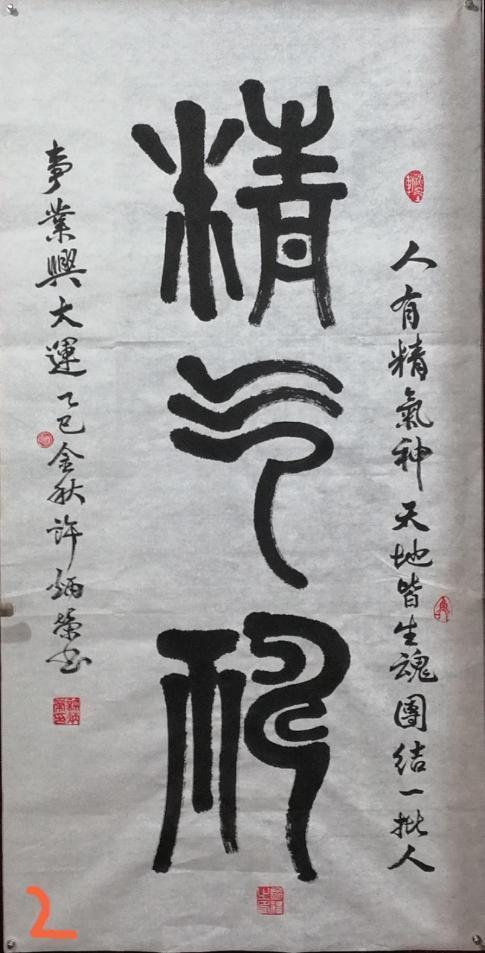 精气神
人有精氣神天地皆生魂團结一批人
事業興大運乙巳金秋许炳荣书
2